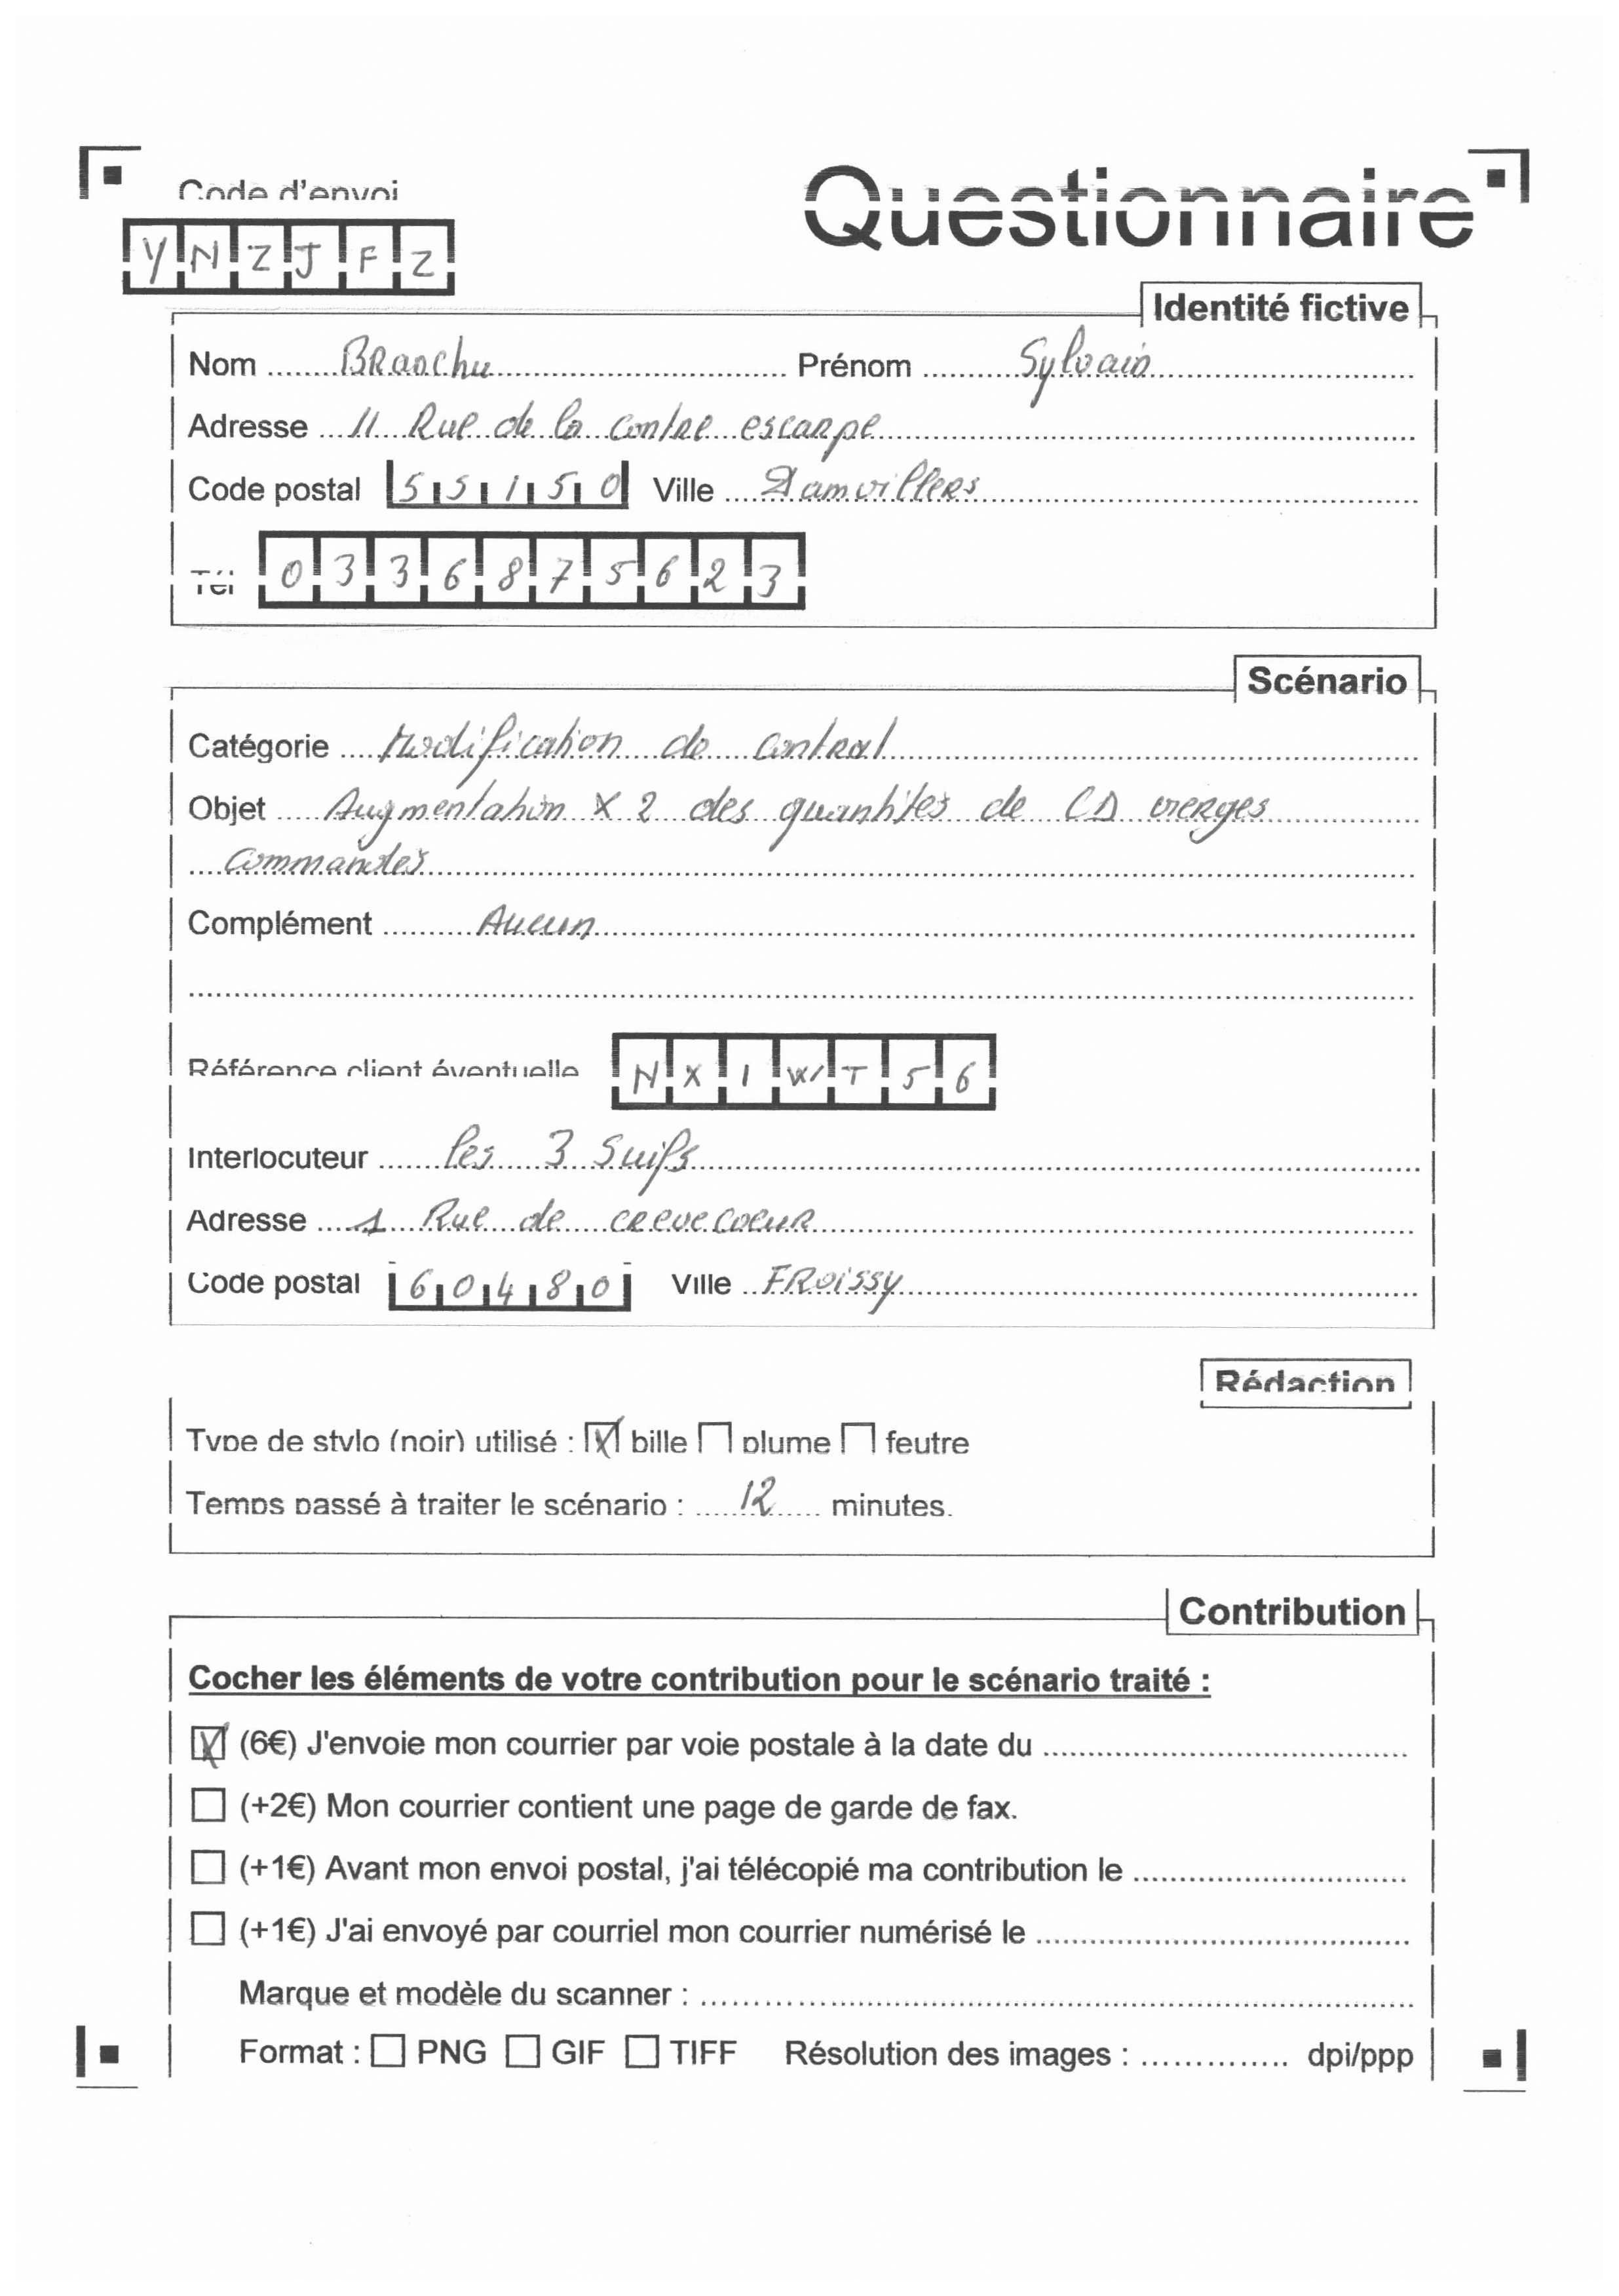 Code d'envoi
Questionnaire
YNZJFZ
Identité fictive
Nom Branchu Prénom Sylvain
Adresse 11 Rue de la contre escarpe
Code postal 55150 Ville Damvillers
Tél 0336875623
Scénario
Catégorie Modification de contrat
Objet Augmentation X 2 des quantités de CD vierges
commandés
Complément Aucun
Référence client éventuelle NXIWT56
Interlocuteur les 3 Suifs
Adresse 1 Rue de crevecoeur
Code postal 60480 Ville FROISSY
Rédaction
Type de stylo (noir) utilisé : bille plume feutre
Temps passé à traiter le scénario : 12 minutes.
Contribution
Cocher les éléments de votre contribution pour le scénario traité :
(6€) J'envoie mon courrier par voie postale à la date du
(+2€) Mon courrier contient une page de garde de fax.
(+1€) Avant mon envoi postal, j'ai télécopié ma contribution le
(+1€) J'ai envoyé par courriel mon courrier numérisé le
Marque et modèle du scanner :
Format : PNG GIF TIFF Résolution des images : dpi/ppp